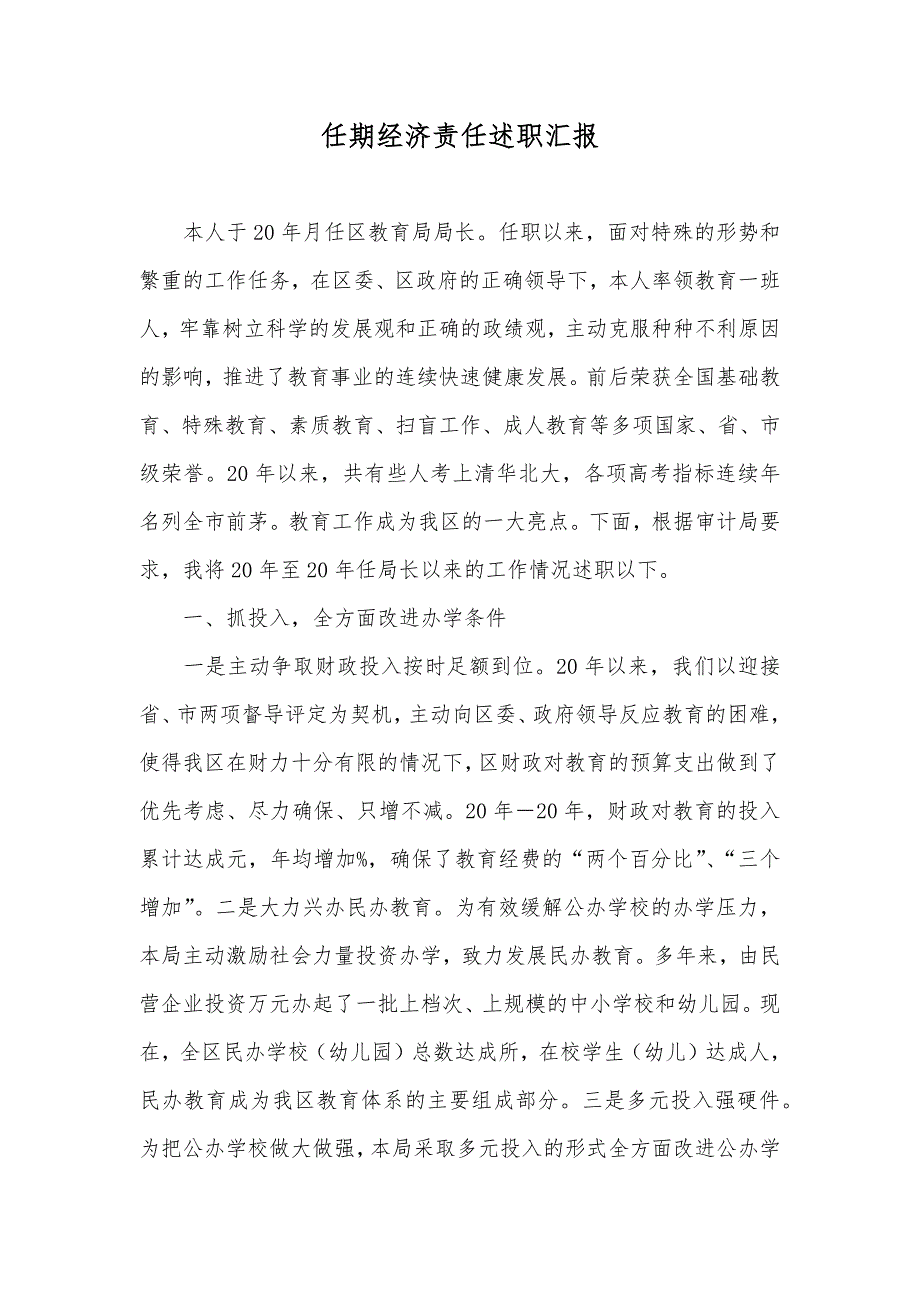 任期经济责任述职汇报
本人于 20 年月任区教育局局长。任职以来，面对特殊的形势和
繁重的工作任务，在区委、区政府的正确领导下，本人率领教育一班
人，牢靠树立科学的发展观和正确的政绩观，主动克服种种不利原因
的影响，推进了教育事业的连续快速健康发展。前后荣获全国基础教
育、特殊教育、素质教育、扫盲工作、成人教育等多项国家、省、市
级荣誉。20 年以来，共有些人考上清华北大，各项高考指标连续年
名列全市前茅。教育工作成为我区的一大亮点。下面，根据审计局要
求，我将 20 年至 20 年任局长以来的工作情况述职以下。
一、抓投入，全方面改进办学条件
一是主动争取财政投入按时足额到位。20 年以来，我们以迎接
省、市两项督导评定为契机，主动向区委、政府领导反应教育的困难，
使得我区在财力十分有限的情况下，区财政对教育的预算支出做到了
优先考虑、尽力确保、只增不减。20 年－20 年，财政对教育的投入
累计达成元，年均增加%，确保了教育经费的“两个百分比”、“三个
增加”。二是大力兴办民办教育。为有效缓解公办学校的办学压力，
本局主动激励社会力量投资办学，致力发展民办教育。多年来，由民
营企业投资万元办起了一批上档次、上规模的中小学校和幼儿园。现
在，全区民办学校（幼儿园）总数达成所，在校学生（幼儿）达成人，
民办教育成为我区教育体系的主要组成部分。三是多元投入强硬件。
为把公办学校做大做强，本局采取多元投入的形式全方面改进公办学